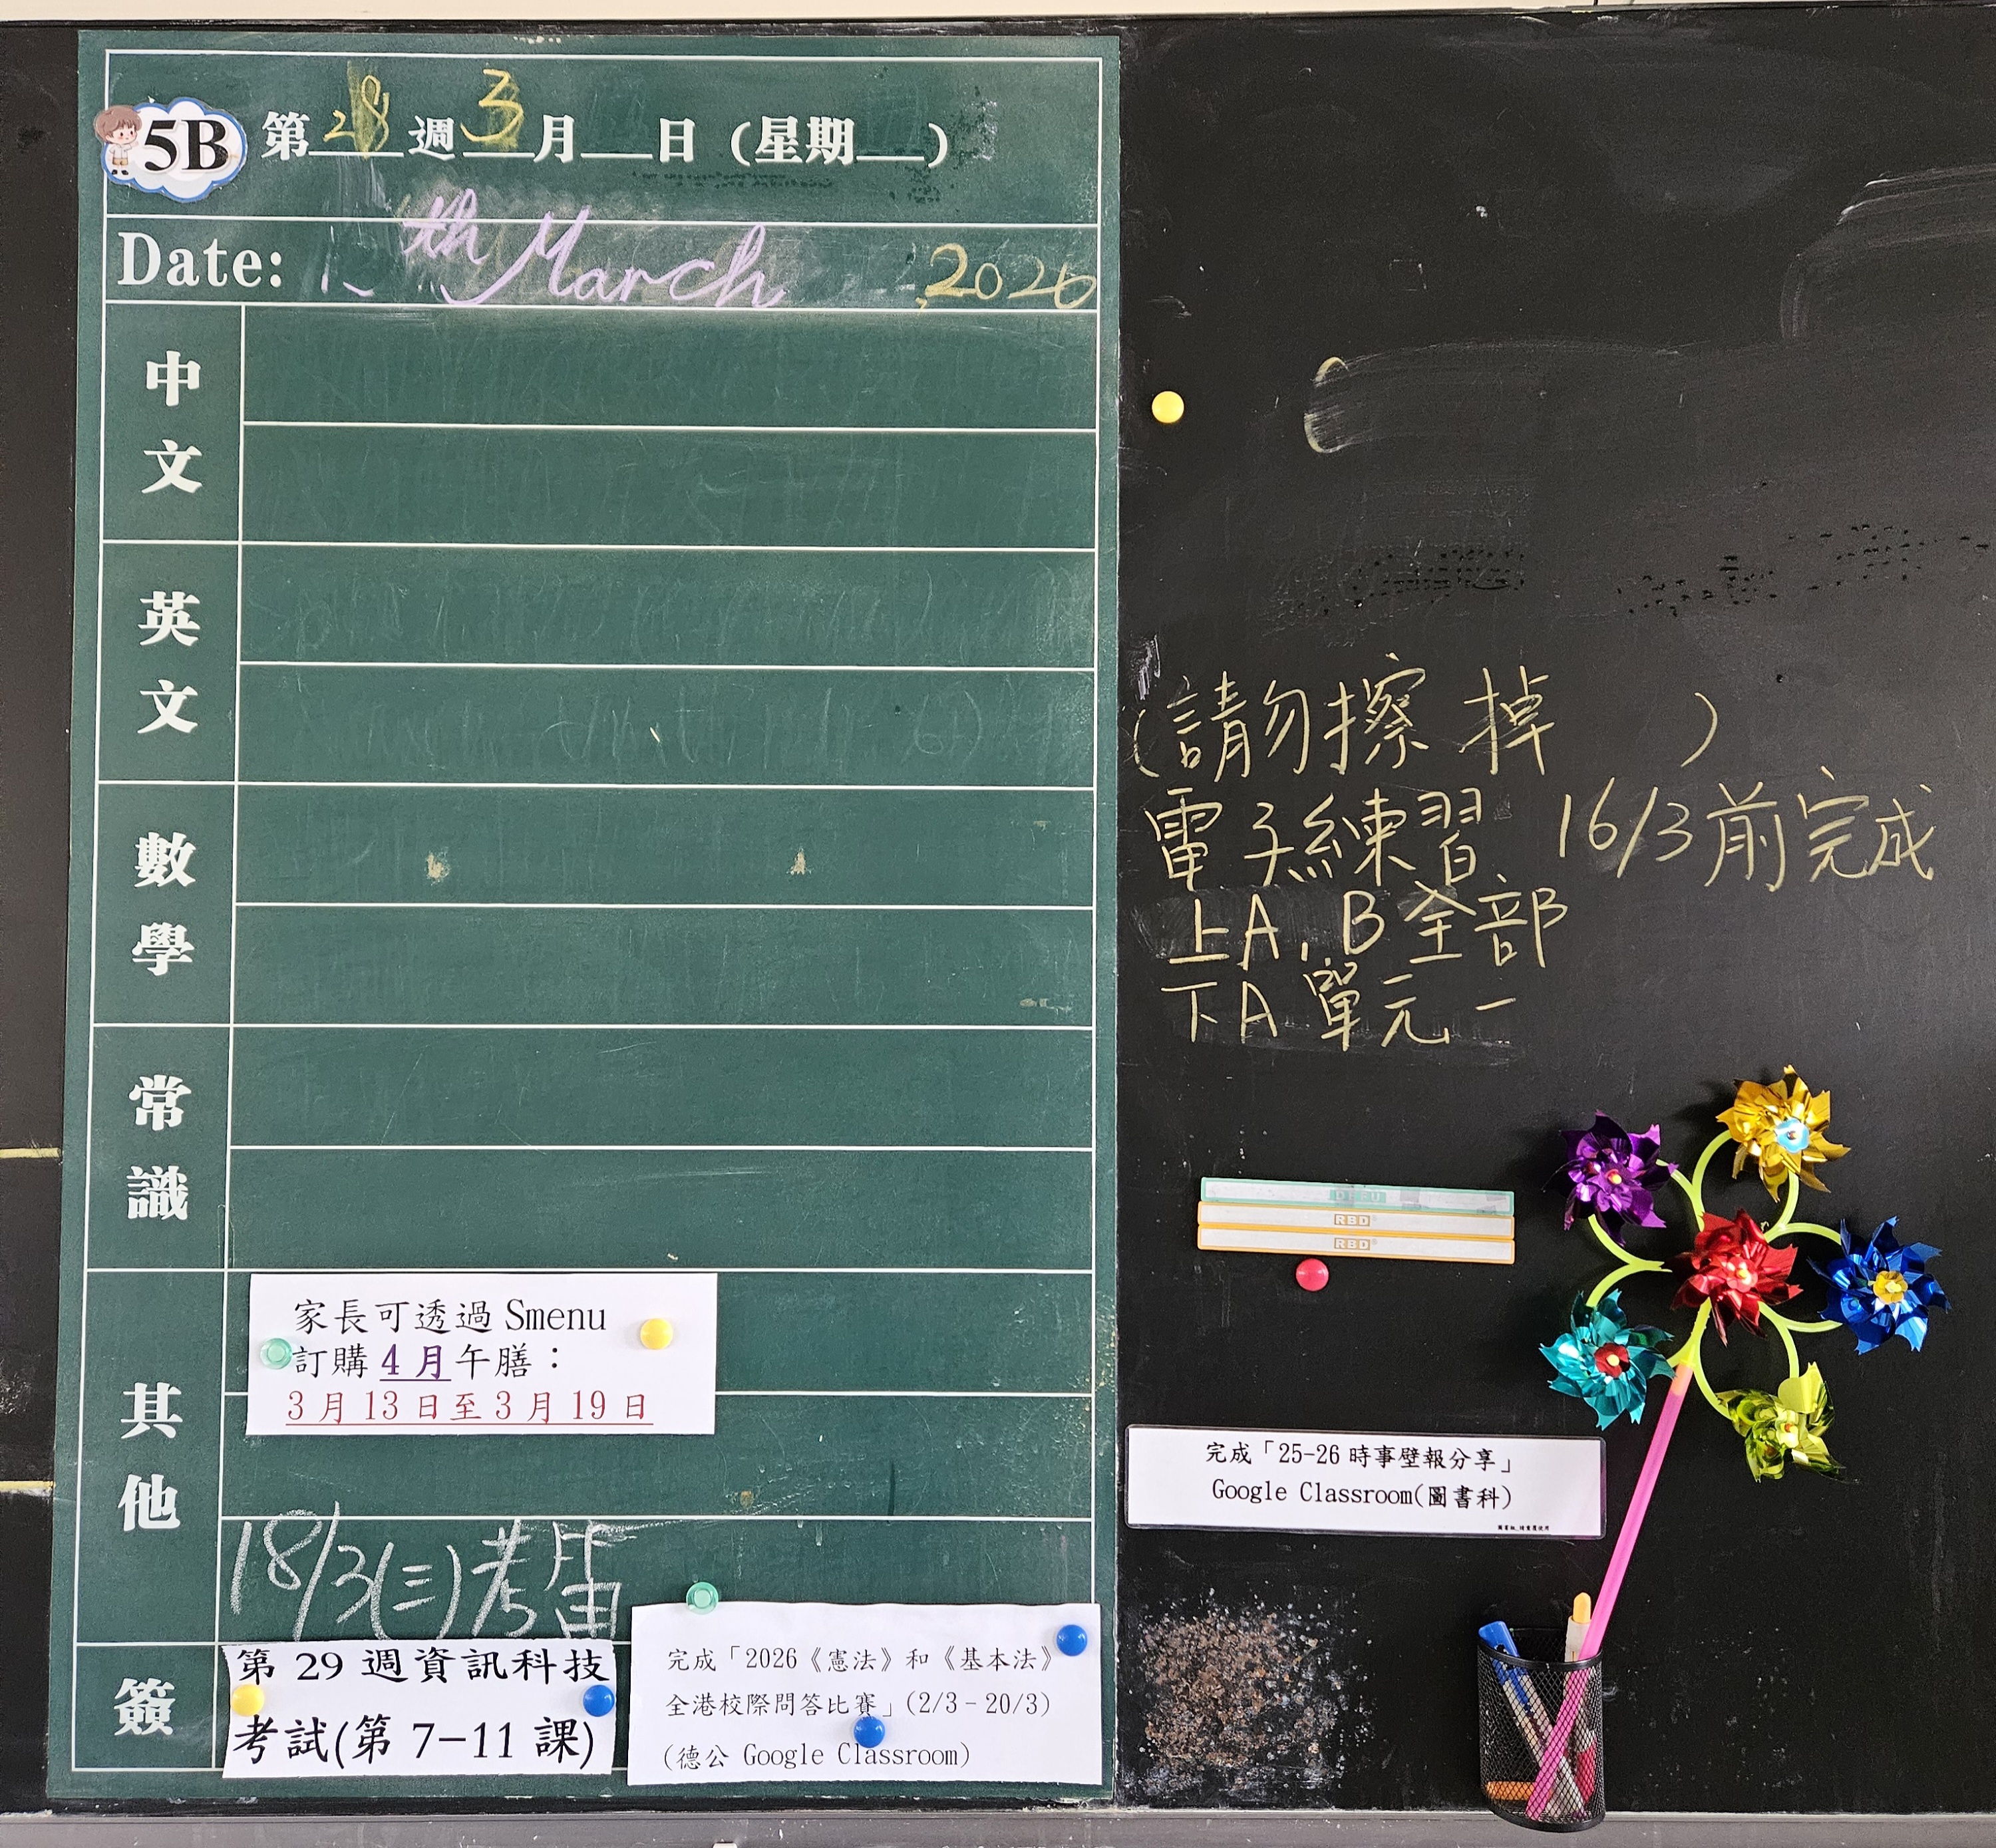 5B 第28週3月__日(星期__)
Date: th March ,2026
中文
英文
數學
常識
其他
家長可透過 Smenu
訂購 4 月午膳：
3 月 13 日至 3 月 19 日
18/3(三)考笛
簽
第 29 週資訊科技
考試(第 7-11 課)
完成「2026《憲法》和《基本法》
全港校際問答比賽」(2/3-20/3)
(德公 Google Classroom)
(請勿擦掉)
電子練習 16/3前完成
上A,B全部
下A單元一
RBD
RBD
完成「25-26 時事壁報分享」
Google Classroom(圖書科)